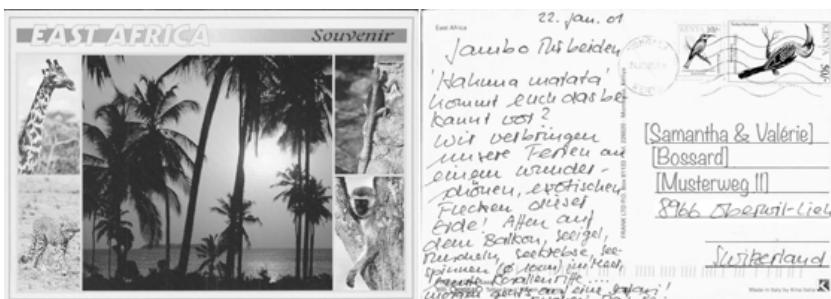 EAST AFRICA
Souvenir
East Africa
22. Jan. 01
Jambo Ihr beiden
'Hakuna matata'
kommt euch das be-
kannt vor?
Wir verbringen
unsere Ferien an
einem wunder-
schönen, exotischen
Flecken dieser
Erde! Affen auf
dem Balkon, Seeigel,
Muscheln, Seekrebse, See-
spinnen
KENYA
KENYA
[Samantha & Valérie]
[Bossard]
[Musterweg 11]
8966 Oberwil-Lieli
Switzerland
Made in Italy by Kina Italia
K